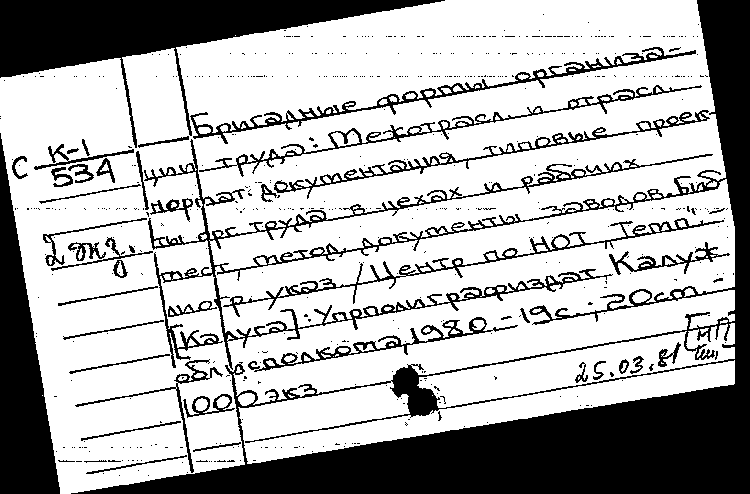 Бригадные формы организа-
С К-1
534
ции труда: Межотрасл. и отрасл.
нормат. документация, типовые проек-
ты орг труда в цехах и рабочих
2 экз.
мест, метод. документы заводов. Биб
лиогр. указ. / Центр по НОТ „Темп". -
[Калуга]: Упрполиграфиздат Калуж
облисполкома, 1980. - 19с.; 20см. -
1000 экз
25.03.81 [МП]